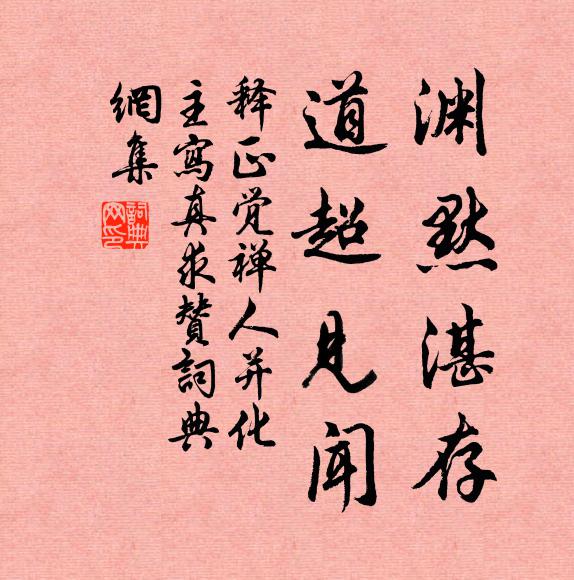 渊默湛存
道超见闻
释正觉禅人并化
主寫真求贊詞典
網集
詞典網印